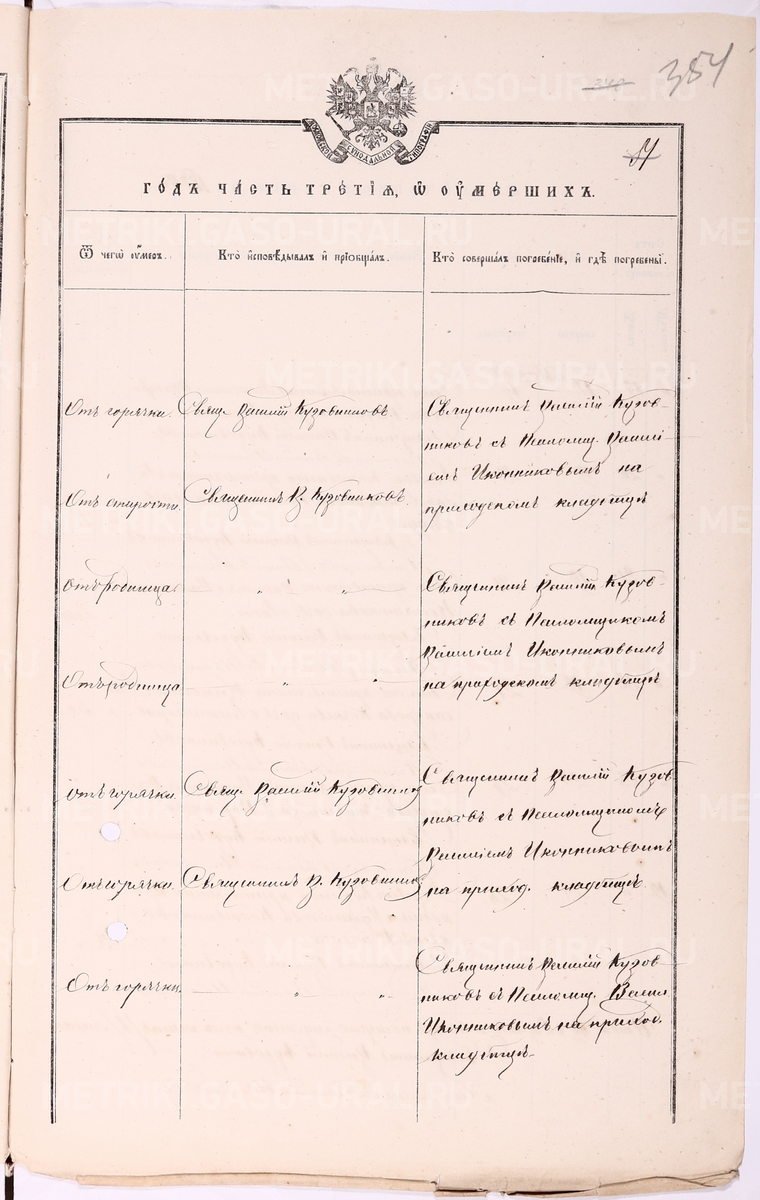 384
МОСКОВСКОЙ СУНОДАЛЬНОЙ ТИПОГРАФІИ
57
ГО́ДЪ ЧАСТЬ ТРЕ́ТІѦ, Ѡ ОУ҆МЕ́РШИХЪ.
Ѿ чегѡ̀ оу҆́меръ.
Кто̀ и҆сповѣ́дывалъ и҆ прїѡбща́лъ.
Кто̀ соверша́лъ погребе́нїе, и҆ гдѣ̀ погребены̀.
Отъ горячки.
Свящ. Василій Кузовниковъ
Священникъ Василій Кузов-
никовъ съ Псаломщ. Васил-
емъ Иконниковымъ на
приходскомъ кладбищѣ
Отъ старости.
Священникъ В. Кузовниковъ
Отъ родимца
„ „
Священникъ Василій Кузов-
никовъ съ Псаломщикомъ
Василіемъ Иконниковымъ
на приходскомъ кладбищѣ
Отъ родимца
„ „
Отъ горячки.
Свящ. Василій Кузовников
Священникъ Василій Кузов
никовъ съ Псаломщикомъ
Василіемъ Иконниковымъ
на приход. кладбищѣ
Отъ горячки.
Священникъ В. Кузовников
Отъ горячки.
„ „
Священникъ Василій Кузов-
никовъ съ Псаломщ. Васил
Иконниковымъ на приход.
кладбищѣ.
METRIKI.GASO-URAL.RU